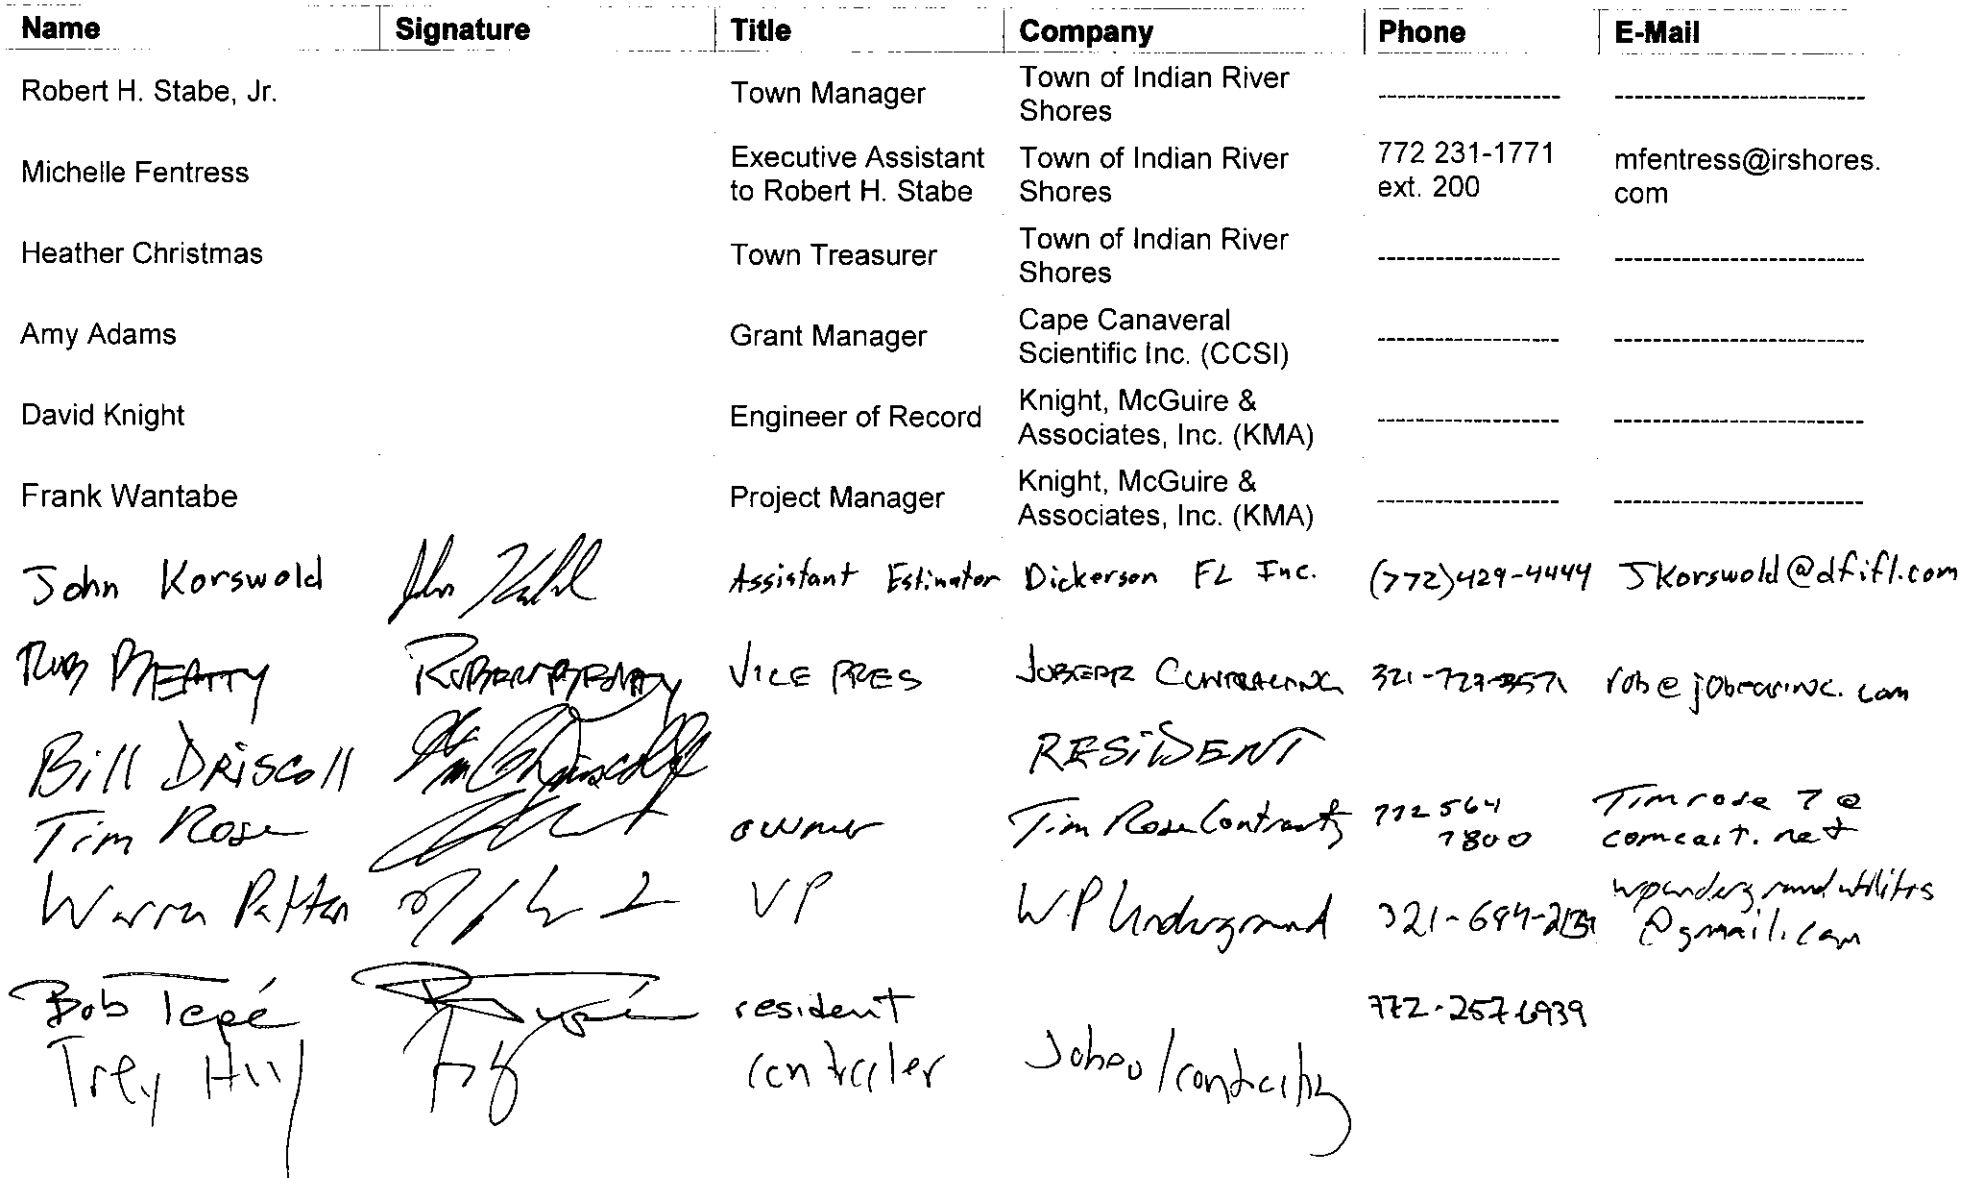 Name Signature Title Company Phone E-Mail
Robert H. Stabe, Jr. Town Manager Town of Indian River Shores ------------------ -------------------------
Michelle Fentress Executive Assistant to Robert H. Stabe Town of Indian River Shores 772 231-1771 ext. 200 mfentress@irshores.com
Heather Christmas Town Treasurer Town of Indian River Shores ------------------ -------------------------
Amy Adams Grant Manager Cape Canaveral Scientific Inc. (CCSI) ------------------ -------------------------
David Knight Engineer of Record Knight, McGuire & Associates, Inc. (KMA) ------------------ -------------------------
Frank Wantabe Project Manager Knight, McGuire & Associates, Inc. (KMA) ------------------ -------------------------
John Korswold Assistant Estimator Dickerson FL Inc. (772)429-4444 Jkorswold@dfifl.com
Rob Beatty Vice Pres
Bill Driscoll RESIDENT
Tim Rose owner Tim Rose 772 564 7800 Timrose7@comcast.net
Patten VP WP Underground @gmail.com
Bob Tepé resident
Trey Hill